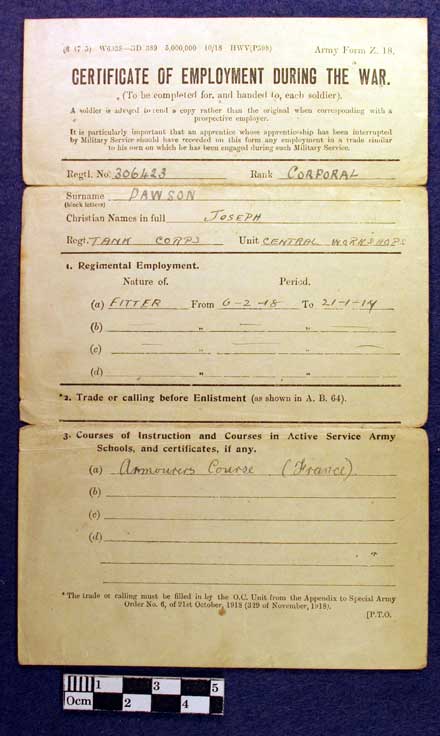 5,000,000 10/18 HWV(P398) Army Form Z. 18.
CERTIFICATE OF EMPLOYMENT DURING THE WAR.
(To be completed for, and handed to, each soldier).
A soldier is advised to send a copy rather than the original when corresponding with a
prospective employer.
It is particularly important that an apprentice whose apprenticeship has been interrupted
by Military Service should have recorded on this form any employment in a trade similar
to his own on which he has been engaged during such Military Service.
Regtl. No. 306423 Rank CORPORAL
Surname DAWSON
(block letters)
Christian Names in full JOSEPH
Regt. TANK CORPS Unit CENTRAL WORKSHOPS
1. Regimental Employment.
Nature of. Period.
(a) FITTER From 6-2-18 To 21-1-19
(b) " "
(c) " "
(d) " "
*2. Trade or calling before Enlistment (as shown in A. B. 64).
3. Courses of Instruction and Courses in Active Service Army
Schools, and certificates, if any.
(a) Armourers Course (France)
(b)
(c)
(d)
* The trade or calling must be filled in by the O.C. Unit from the Appendix to Special Army
Order No. 6, of 21st October, 1918 (329 of November, 1918).
[P.T.O.
1 3 5
0cm 2 4